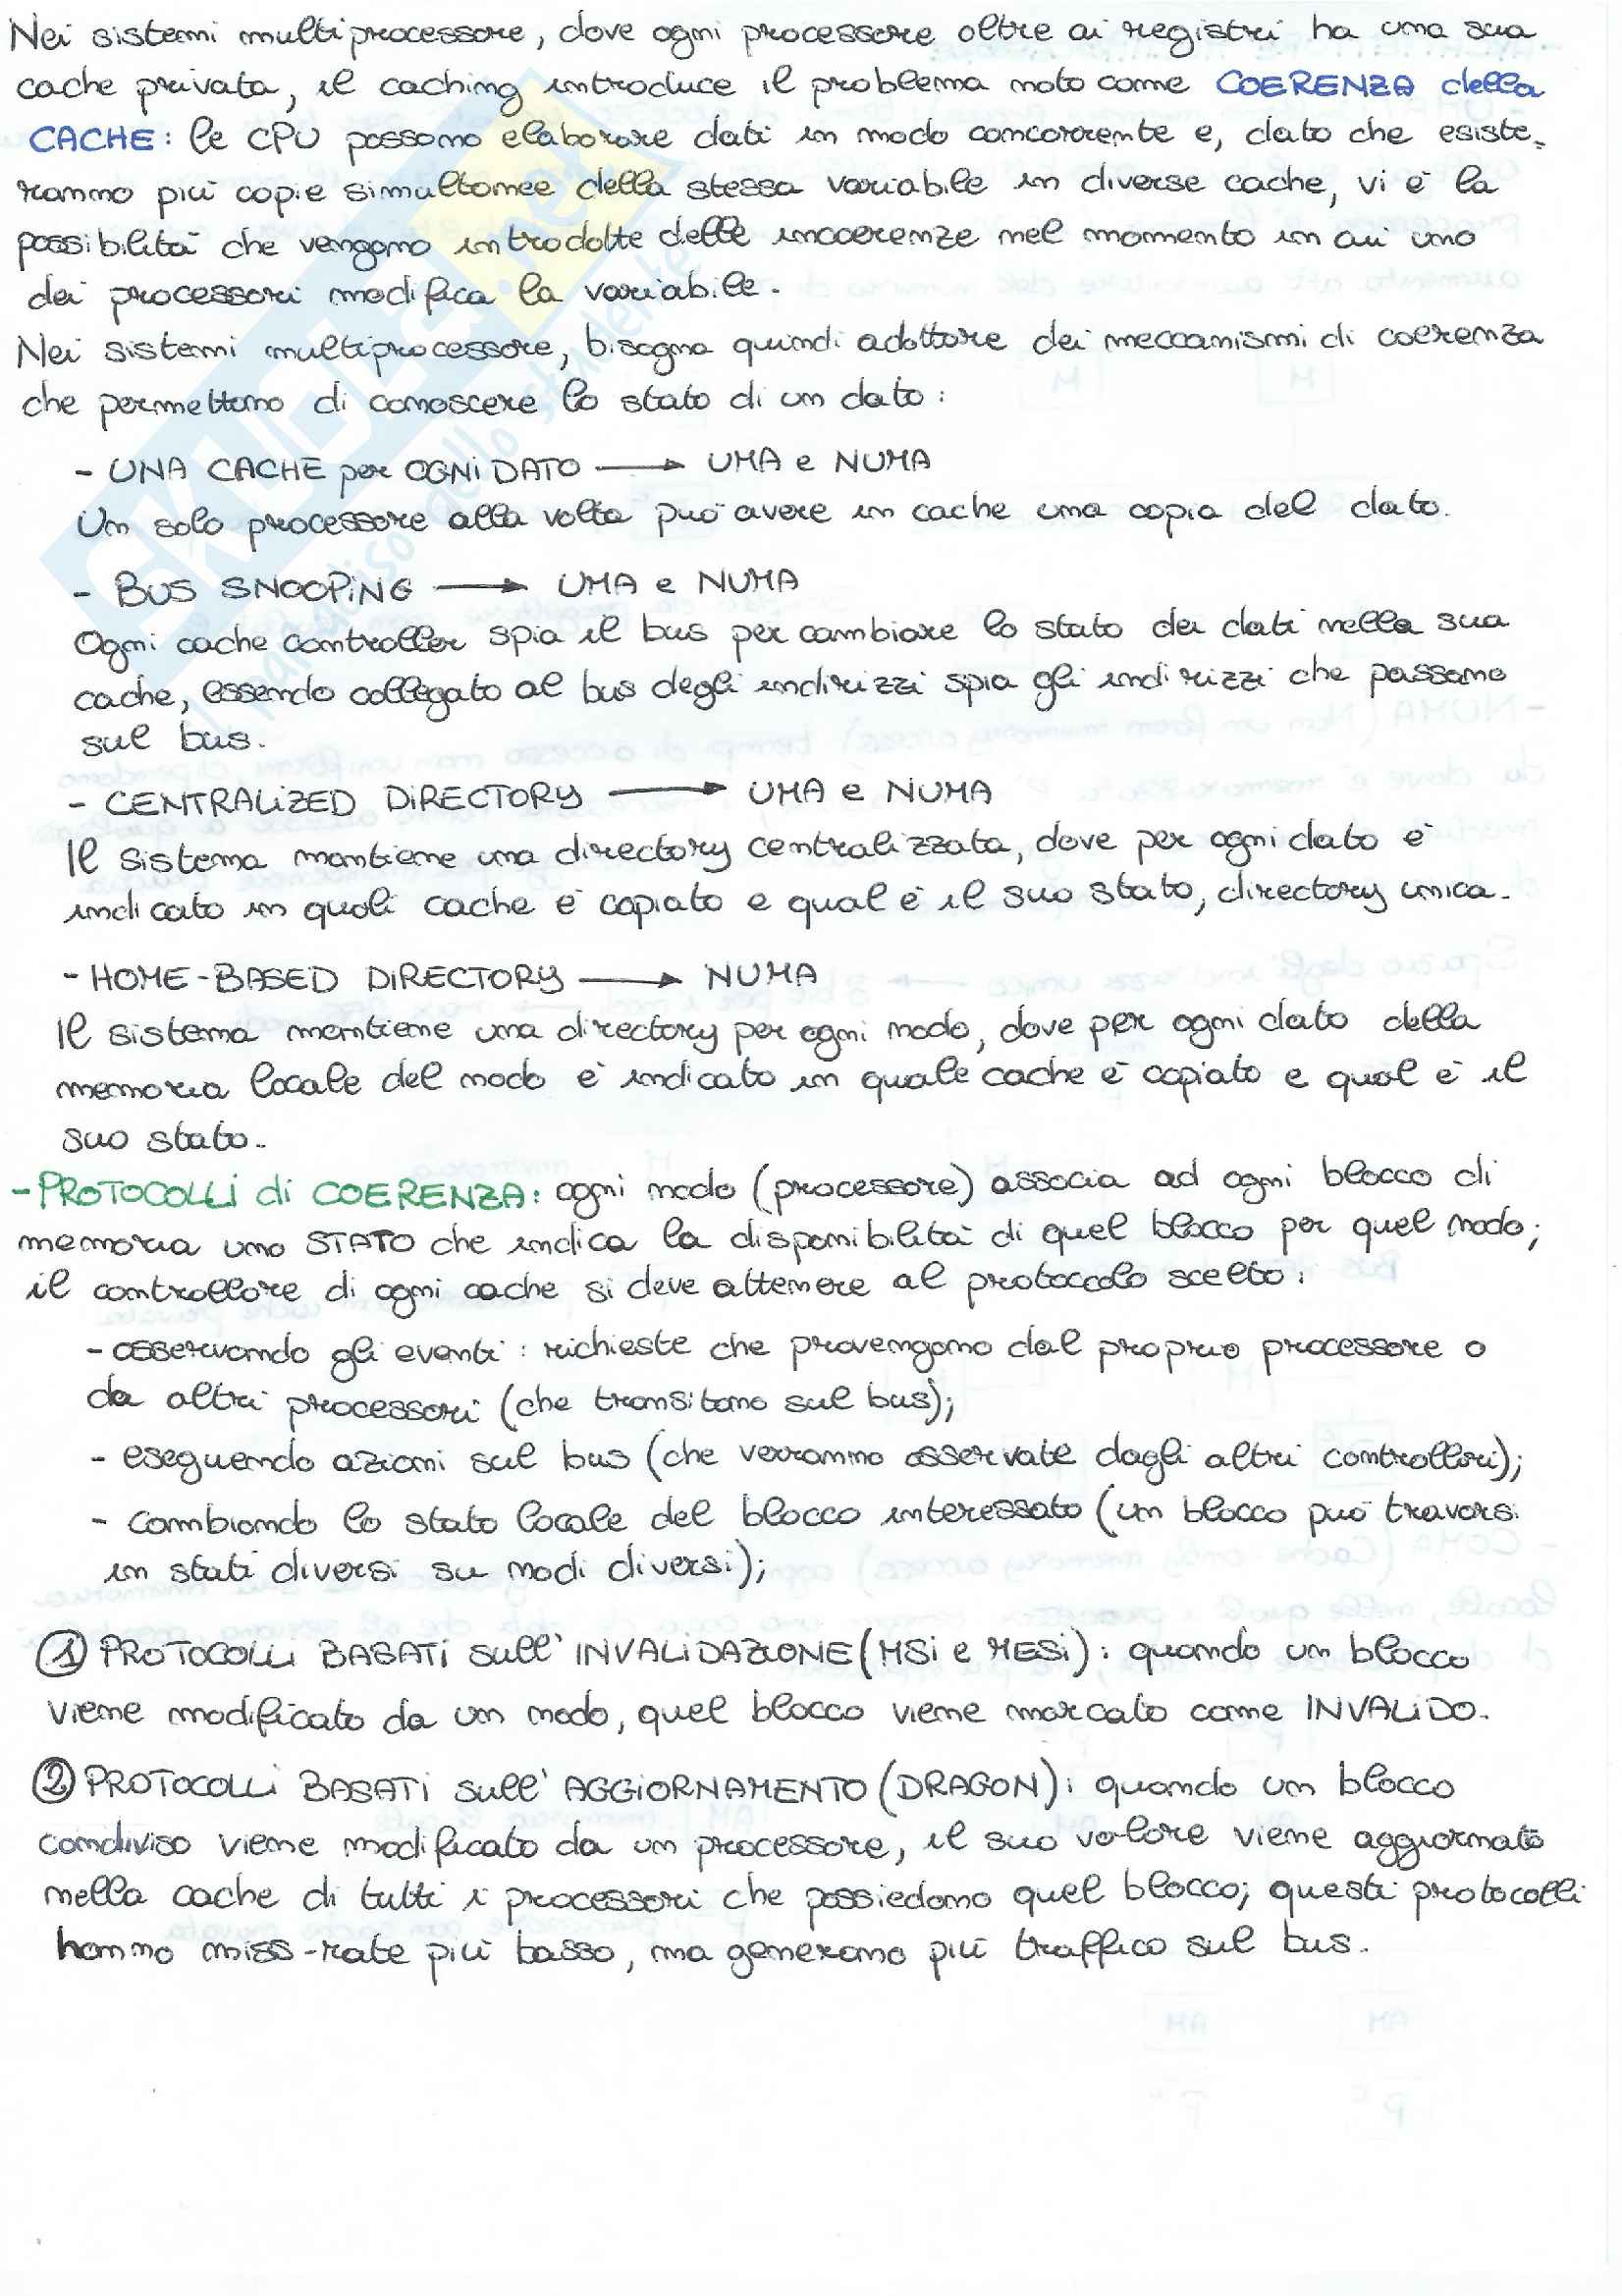 Nei sistemi multiprocessore, dove ogni processore oltre ai registri ha una sua
cache privata, il caching introduce il problema noto come COERENZA della
CACHE: le CPU possono elaborare dati in modo concorrente e, dato che esiste-
ranno più copie simultanee della stessa variabile in diverse cache, vi è la
possibilità che vengono introdotte delle incoerenze nel momento in cui uno
dei processori modifica la variabile.
Nei sistemi multiprocessore, bisogna quindi adottare dei meccanismi di coerenza
che permettono di conoscere lo stato di un dato:
- UNA CACHE per OGNI DATO → UMA e NUMA
Un solo processore alla volta può avere in cache una copia del dato.
- BUS SNOOPING → UMA e NUMA
Ogni cache controller spia il bus per cambiare lo stato dei dati nella sua
cache, essendo collegato al bus degli indirizzi spia gli indirizzi che passano
sul bus.
- CENTRALIZED DIRECTORY → UMA e NUMA
Il sistema mantiene una directory centralizzata, dove per ogni dato è
indicato in quali cache è copiato e qual è il suo stato, directory unica.
- HOME-BASED DIRECTORY → NUMA
Il sistema mantiene una directory per ogni nodo, dove per ogni dato della
memoria locale del nodo è indicato in quale cache è copiato e qual è il
suo stato.
- PROTOCOLLI di COERENZA: ogni nodo (processore) associa ad ogni blocco di
memoria uno STATO che indica la disponibilità di quel blocco per quel nodo;
il controllore di ogni cache si deve attenere al protocollo scelto:
- osservando gli eventi: richieste che provengono dal proprio processore o
da altri processori (che transitano sul bus);
- eseguendo azioni sul bus (che verranno osservate dagli altri controllori);
- cambiando lo stato locale del blocco interessato (un blocco può trovarsi
in stati diversi su nodi diversi);
① PROTOCOLLI BASATI sull'INVALIDAZIONE (MSI e MESI): quando un blocco
viene modificato da un nodo, quel blocco viene marcato come INVALIDO.
② PROTOCOLLI BASATI sull'AGGIORNAMENTO (DRAGON): quando un blocco
condiviso viene modificato da un processore, il suo valore viene aggiornato
nella cache di tutti i processori che possiedono quel blocco; questi protocolli
hanno miss-rate più basso, ma generano più traffico sul bus.